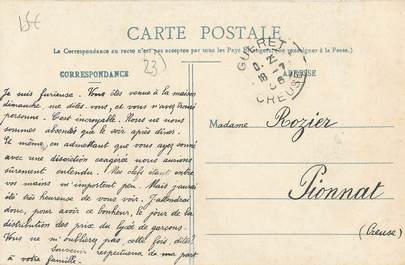 15€
CARTE POSTALE
La Correspondance au recto n'est pas acceptée par tous les Pays Etrangers (se renseigner à la Poste.)
CORRESPONDANCE
23)
ADRESSE
GUERET
CREUSE
Je suis furieuse. Vous êtes venue à la maison
dimanche, me dites-vous, et vous n'avez trouvé
personne. C'est incroyable. Nous ne nous
sommes absentés que le soir après dîner.
Et même, en admettant que vous ayez sonné
avec une discrétion exagérée nous aurions
sûrement entendu. Mes clefs étant entre
vos mains m'importent peu. Mais j'aurais
été très heureuse de vous voir. J'attendrai
donc, pour avoir ce bonheur, le jour de la
distribution des prix du lycée de garçons.
Vous ne m'oublierez pas, cette fois, dites!
Souvenir respectueux de ma part
à votre famille.
Madame Rozier
Pionnat
(Creuse)